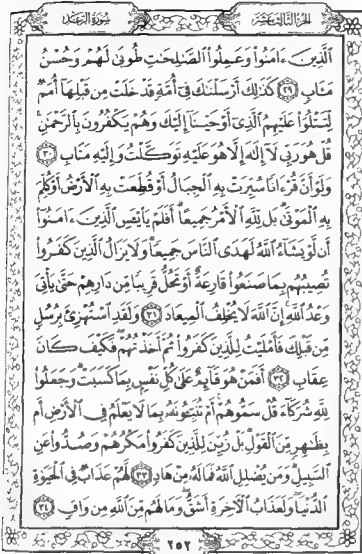 الجزء الثالث عشر
سورة الرعد
ٱلَّذِينَ ءَامَنُوا۟ وَعَمِلُوا۟ ٱلصَّٰلِحَٰتِ طُوبَىٰ لَهُمْ وَحُسْنُ
مَـَٔابٍ ٢٩ كَذَٰلِكَ أَرْسَلْنَٰكَ فِىٓ أُمَّةٍ قَدْ خَلَتْ مِن قَبْلِهَآ أُمَمٌ
لِّتَتْلُوَا۟ عَلَيْهِمُ ٱلَّذِىٓ أَوْحَيْنَآ إِلَيْكَ وَهُمْ يَكْفُرُونَ بِٱلرَّحْمَٰنِ ۚ
قُلْ هُوَ رَبِّى لَآ إِلَٰهَ إِلَّا هُوَ عَلَيْهِ تَوَكَّلْتُ وَإِلَيْهِ مَتَابِ ٣٠
وَلَوْ أَنَّ قُرْءَانًا سُيِّرَتْ بِهِ ٱلْجِبَالُ أَوْ قُطِّعَتْ بِهِ ٱلْأَرْضُ أَوْ كُلِّمَ
بِهِ ٱلْمَوْتَىٰ ۗ بَل لِّلَّهِ ٱلْأَمْرُ جَمِيعًا ۗ أَفَلَمْ يَا۟يْـَٔسِ ٱلَّذِينَ ءَامَنُوٓا۟
أَن لَّوْ يَشَآءُ ٱللَّهُ لَهَدَى ٱلنَّاسَ جَمِيعًا ۗ وَلَا يَزَالُ ٱلَّذِينَ كَفَرُوا۟
تُصِيبُهُم بِمَا صَنَعُوا۟ قَارِعَةٌ أَوْ تَحُلُّ قَرِيبًا مِّن دَارِهِمْ حَتَّىٰ يَأْتِىَ
وَعْدُ ٱللَّهِ ۚ إِنَّ ٱللَّهَ لَا يُخْلِفُ ٱلْمِيعَادَ ٣١ وَلَقَدِ ٱسْتُهْزِئَ بِرُسُلٍ
مِّن قَبْلِكَ فَأَمْلَيْتُ لِلَّذِينَ كَفَرُوا۟ ثُمَّ أَخَذْتُهُمْ ۖ فَكَيْفَ كَانَ
عِقَابِ ٣٢ أَفَمَنْ هُوَ قَآئِمٌ عَلَىٰ كُلِّ نَفْسٍۭ بِمَا كَسَبَتْ ۗ وَجَعَلُوا۟
لِلَّهِ شُرَكَآءَ قُلْ سَمُّوهُمْ ۚ أَمْ تُنَبِّـُٔونَهُۥ بِمَا لَا يَعْلَمُ فِى ٱلْأَرْضِ أَم
بِظَٰهِرٍ مِّنَ ٱلْقَوْلِ ۗ بَلْ زُيِّنَ لِلَّذِينَ كَفَرُوا۟ مَكْرُهُمْ وَصُدُّوا۟ عَنِ
ٱلسَّبِيلِ ۗ وَمَن يُضْلِلِ ٱللَّهُ فَمَا لَهُۥ مِنْ هَادٍ ٣٣ لَّهُمْ عَذَابٌ فِى ٱلْحَيَوٰةِ
ٱلدُّنْيَا ۖ وَلَعَذَابُ ٱلْءَاخِرَةِ أَشَقُّ ۖ وَمَا لَهُم مِّنَ ٱللَّهِ مِن وَاقٍ ٣٤
٢٥٢